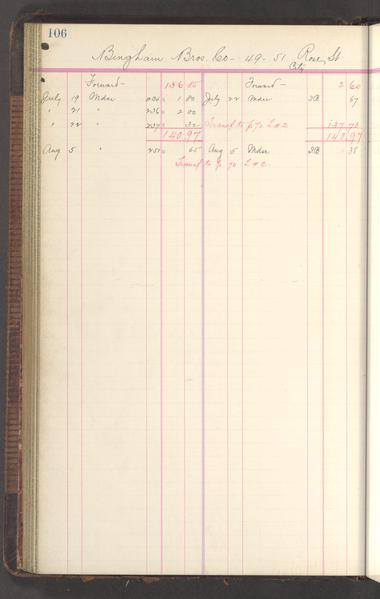 106
Bingham Bros. Co - 49-51 Rose St.
City
Forward - 136 85 Forward - 2 60
July 19 Mdse 1 80 July 22 Mdse 67
" 21 " 2 00
" 22 " 32 Transf to p. 70 L#2 137 70
140.97 140.97
Aug 5 " 251 65 Aug 5 Mdse 35
Transf to p 70 L#2